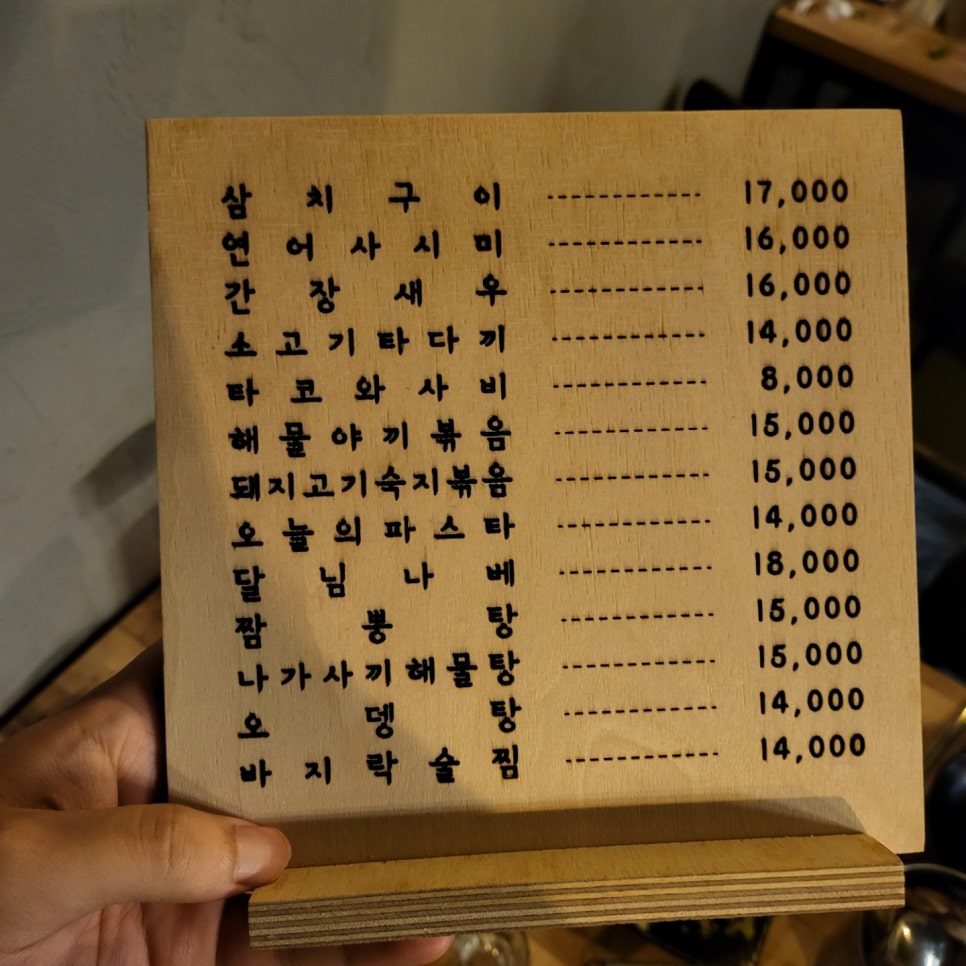 삼치구이 ----------- 17,000
연어사시미 ----------- 16,000
간장새우 ----------- 16,000
소고기타다끼 ----------- 14,000
타코와사비 ----------- 8,000
해물야끼볶음 ----------- 15,000
돼지고기숙지볶음 ----------- 15,000
오늘의파스타 ----------- 14,000
달님나베 ----------- 18,000
짬뽕탕 ----------- 15,000
나가사끼해물탕 ----------- 15,000
오뎅탕 ----------- 14,000
바지락술찜 ----------- 14,000